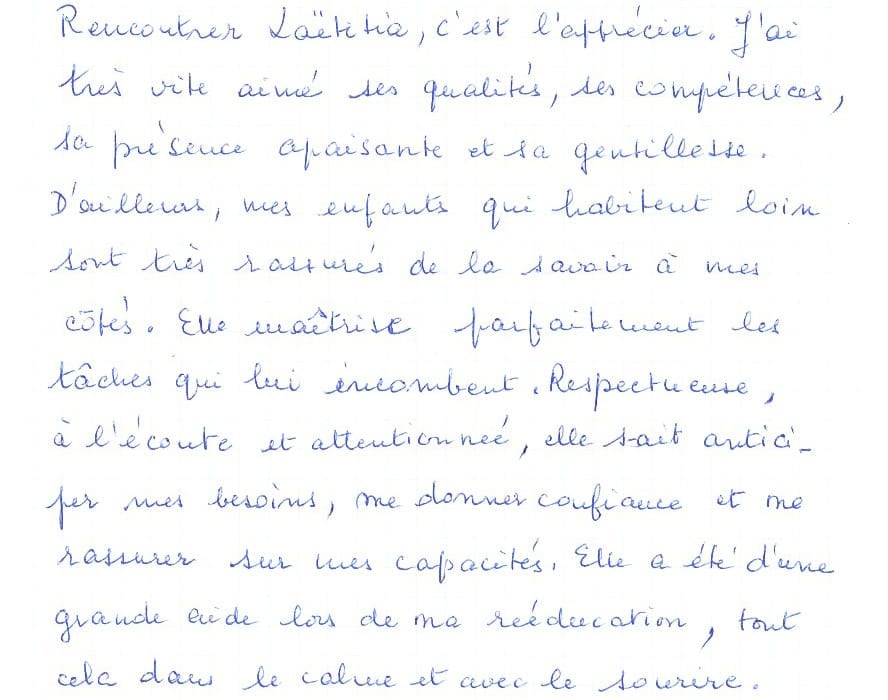 Rencontrer Laëtitia, c'est l'apprécier. J'ai
très vite aimé ses qualités, ses compétences,
sa présence apaisante et sa gentillesse.
D'ailleurs, mes enfants qui habitent loin
sont très rassurés de la savoir à mes
côtés. Elle maîtrise parfaitement les
tâches qui lui incombent. Respectueuse,
à l'écoute et attentionneé, elle sait antici-
per mes besoins, me donner confiance et me
rassurer sur mes capacités. Elle a été d'une
grande aide lors de ma rééducation, tout
cela dans le calme et avec le sourire.